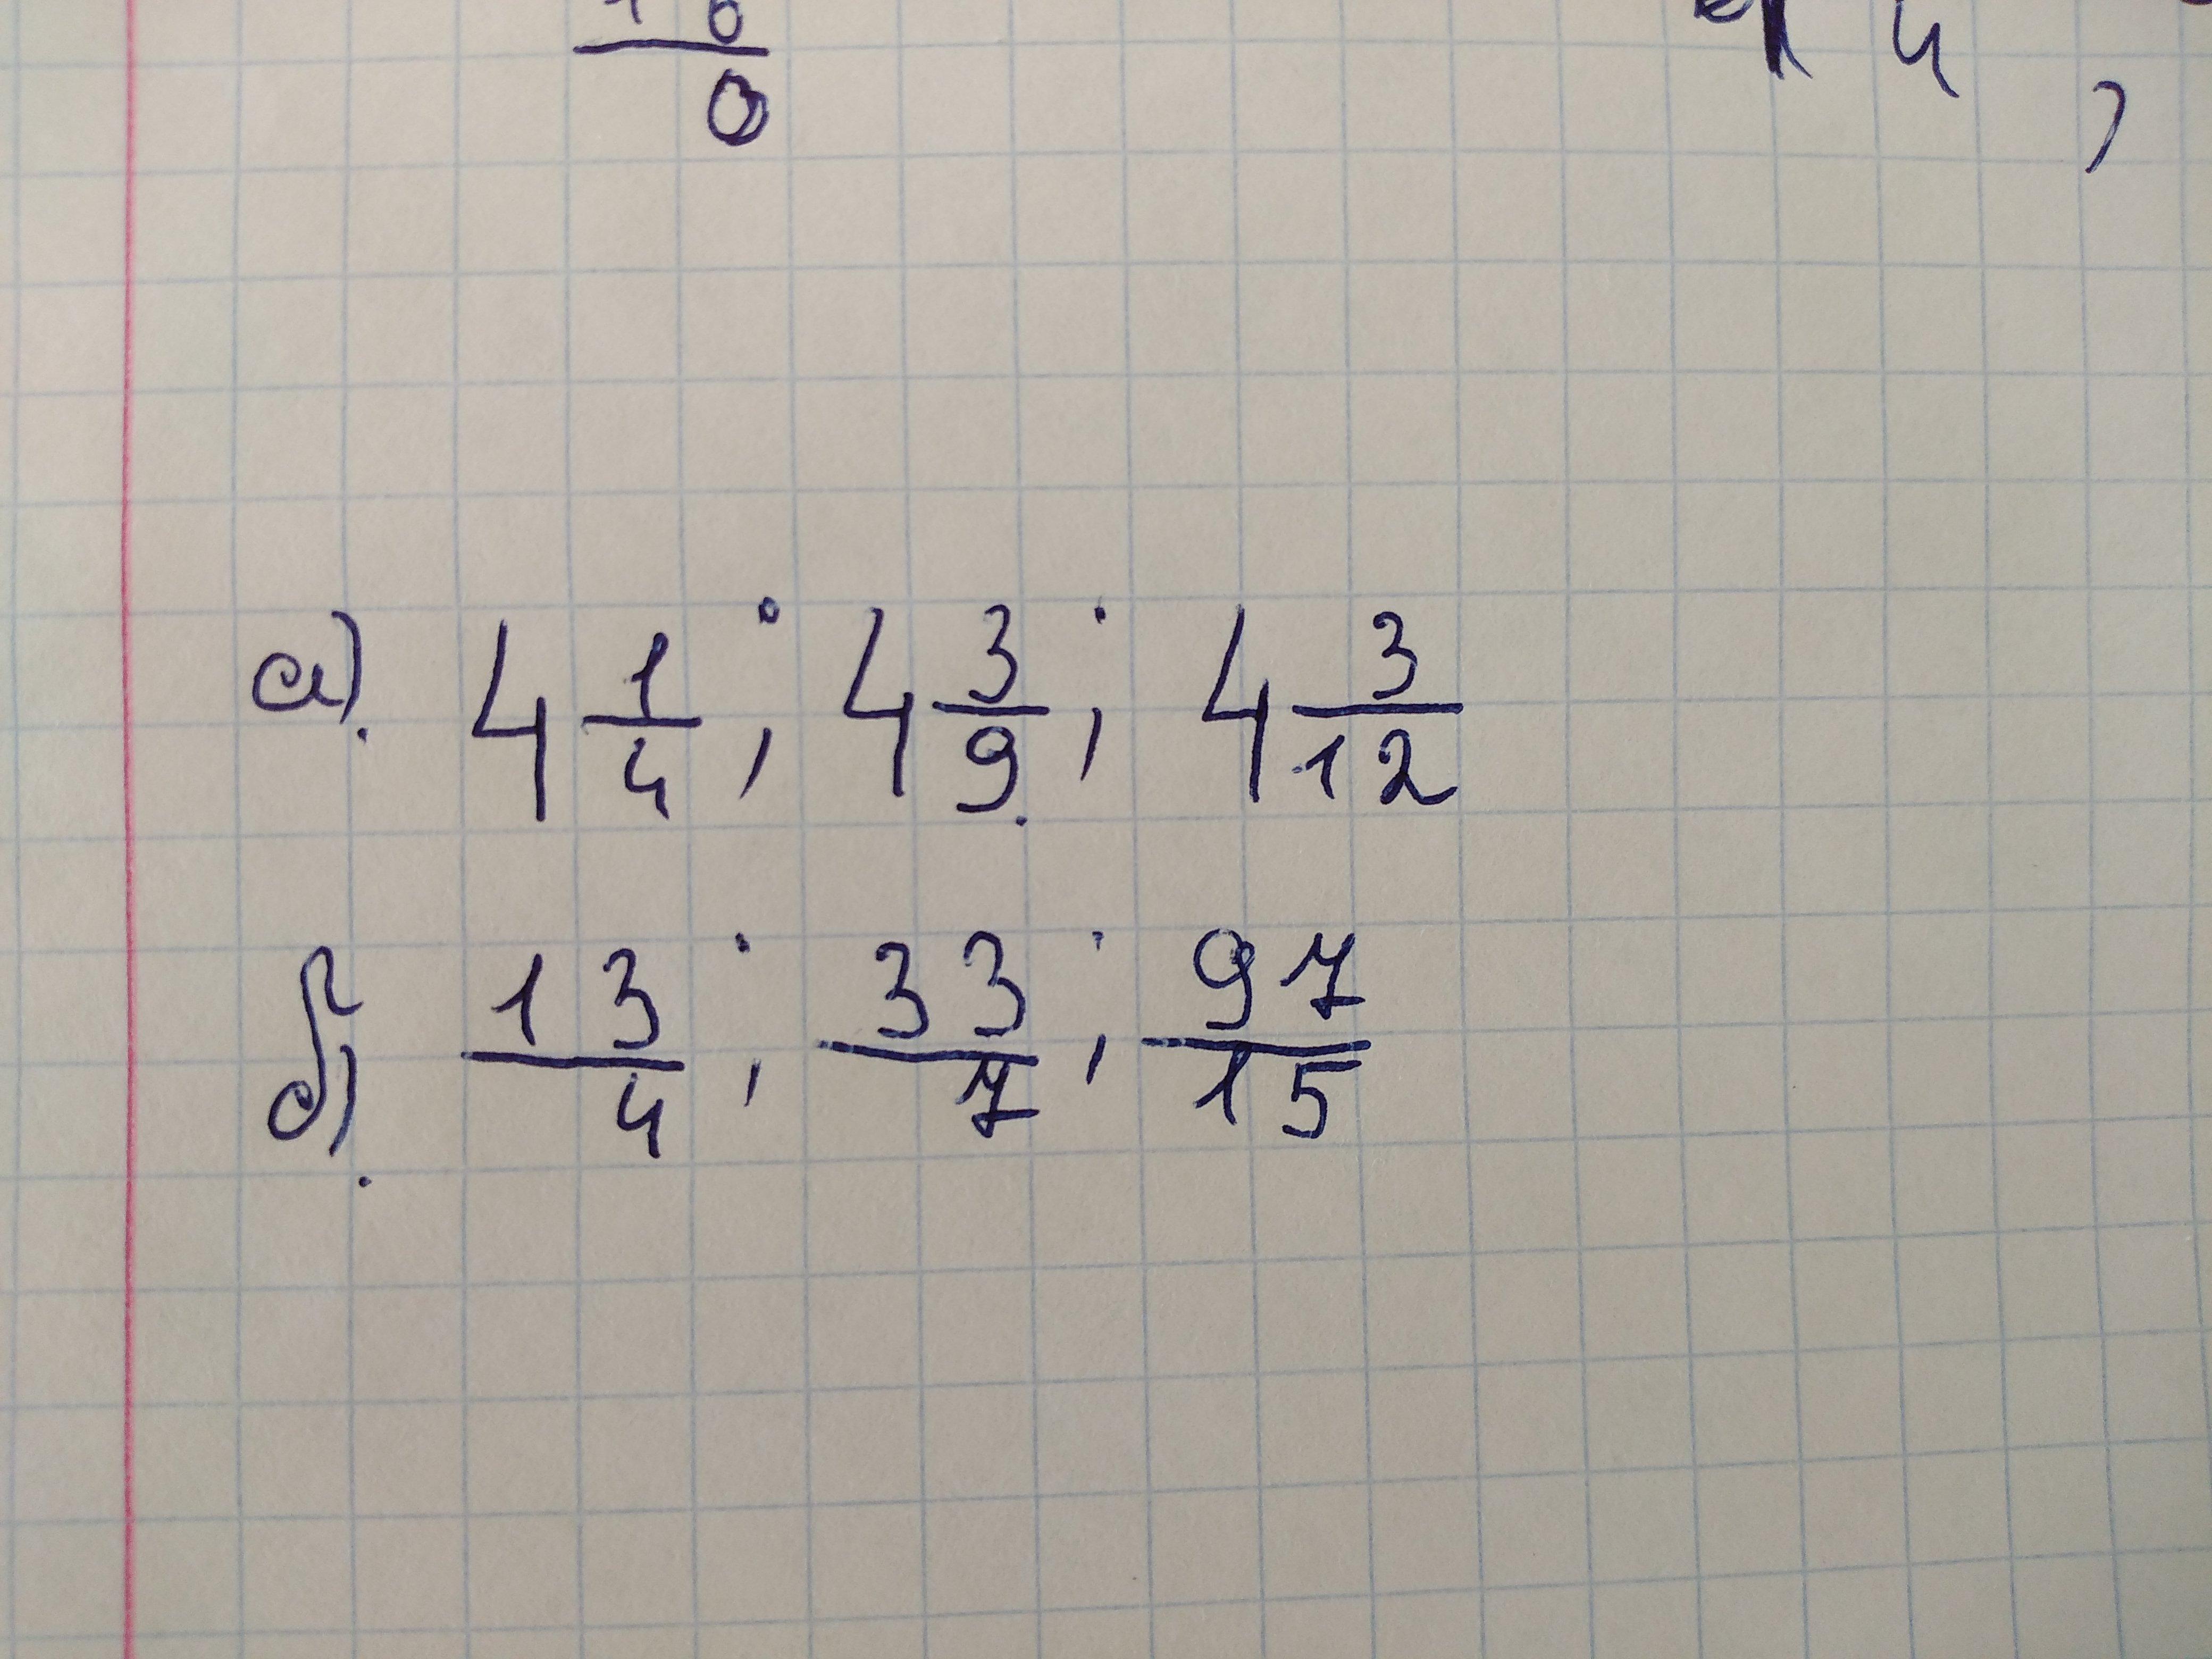 0
а). 4 1/4 ; 4 3/9 ; 4 3/12
б). 13/4 ; 33/7 ; 97/15